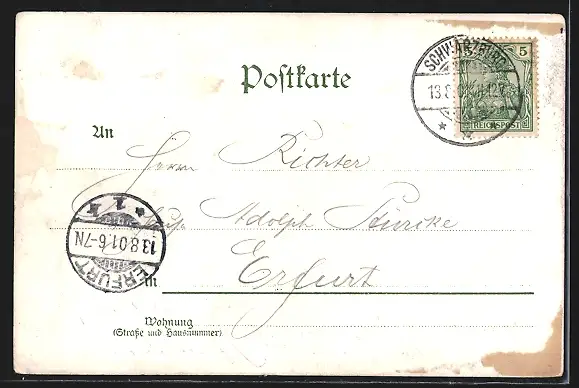 Postkarte
SCHWARZBURG
13.8.01
5
REICHSPOST
An
Herrn Richter
Adolph
ERFURT
13.8.01.6-7N
* 1
in Erfurt
Wohnung
(Straße und Hausnummer)